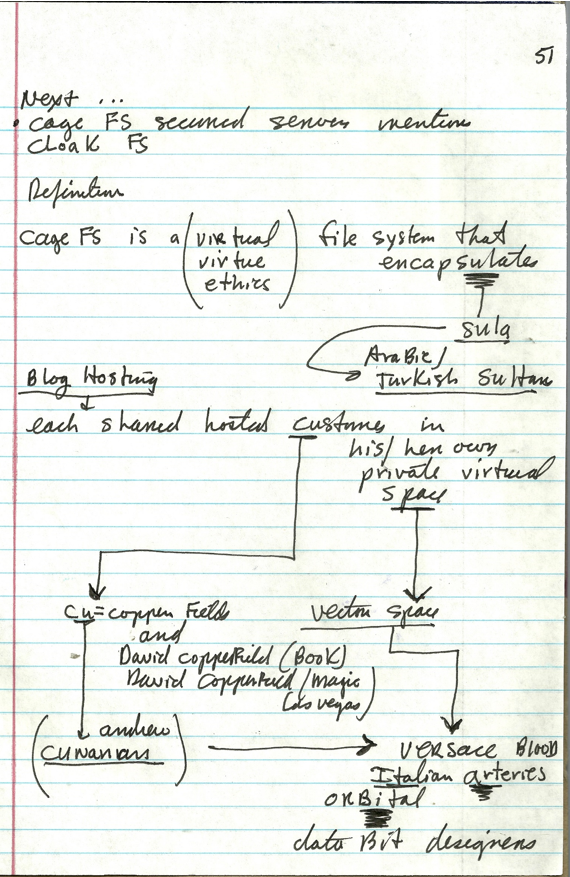 51
Next ...
• cage FS secured servers mention
cloak FS
Definition
cage FS is a (virtual file system that
virtue encapsulates
ethics)
sula
Arabic/
Turkish Sultan
Blog Hosting
each shared hosted customer in
his/her own
private virtual
space
Cu=copper Fields vector space
and
David copperfield (Book)
David copperfield/magic
(Las vegas)
(andrew
cunanan) versace BLOOD
Italian arteries
orBital
data Bit designers